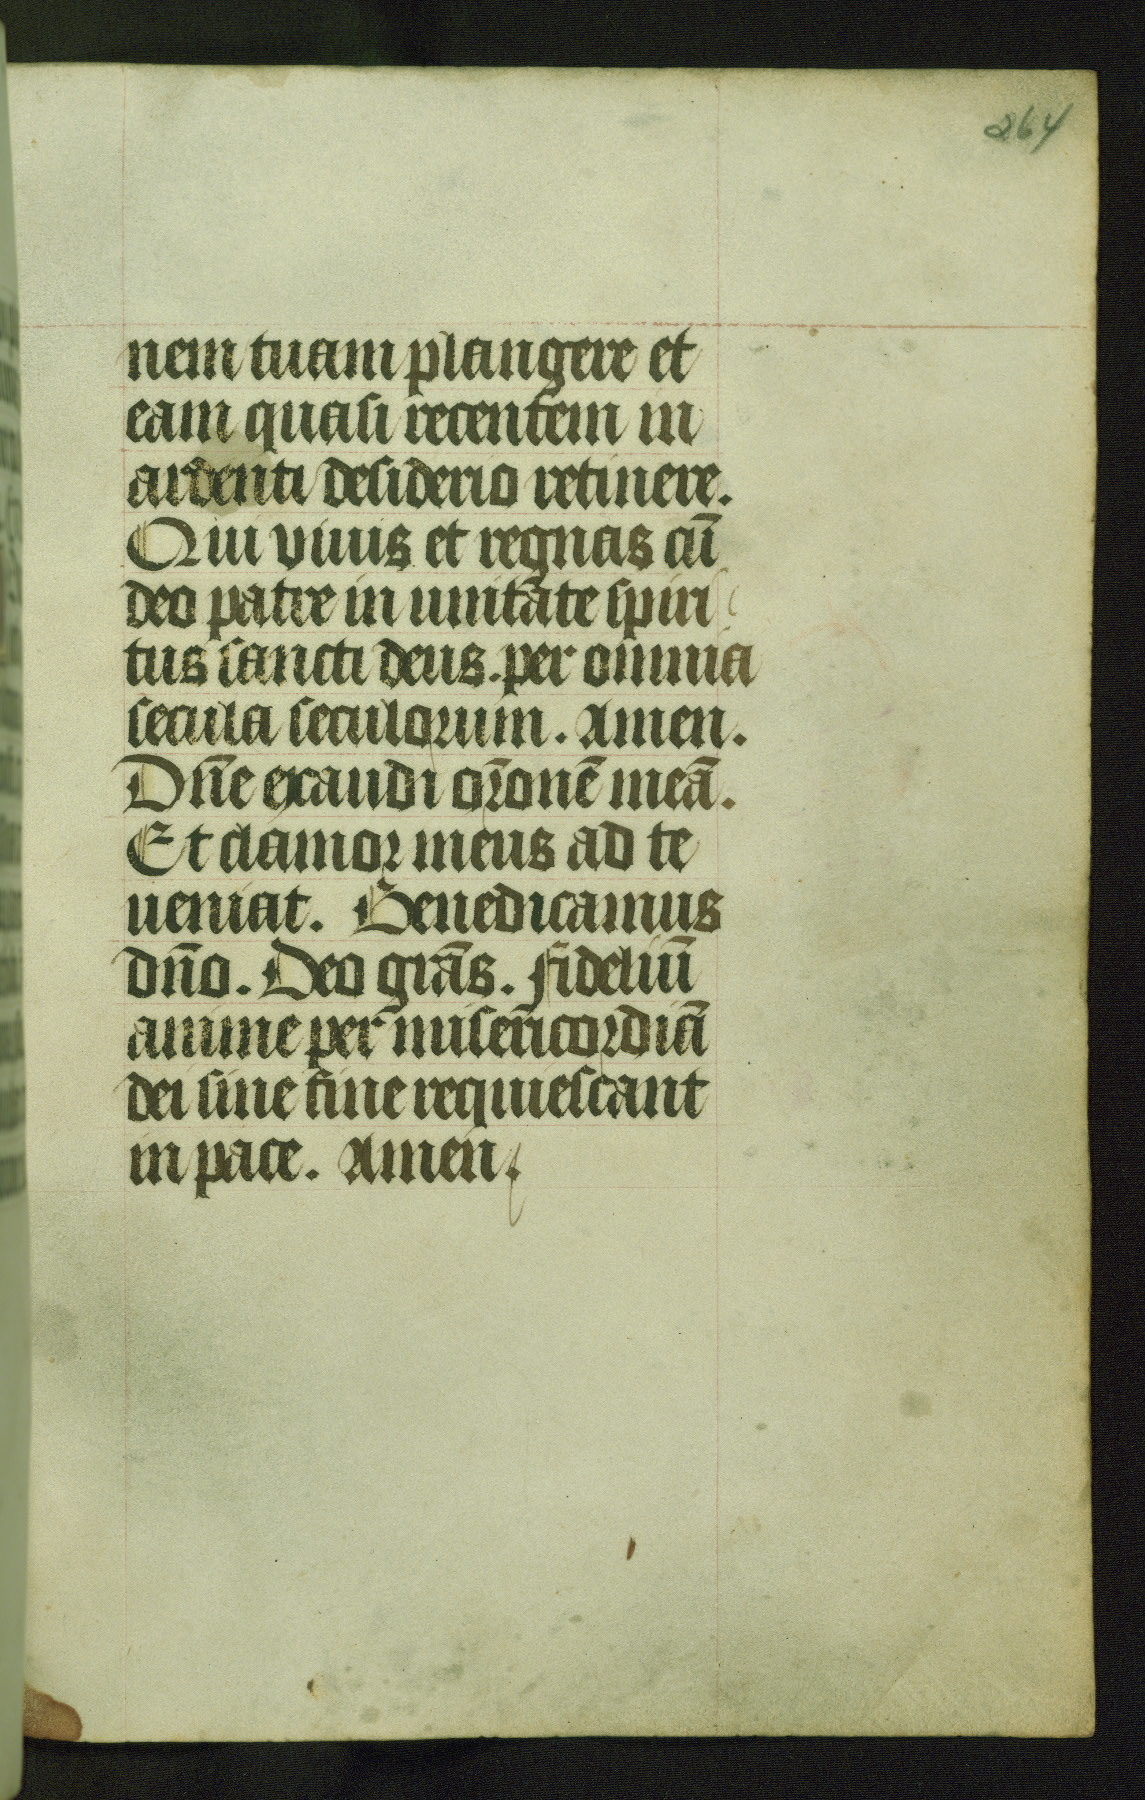 264
nem tuam plangere et
eam quasi recentem in
ardenti desiderio retinere.
Qui viuis et regnas cū
deo patre in unitate spiri
tus sancti deus. per omnia
secula seculorum. Amen.
Dn̄e exaudi or̄onē meā.
Et clamor meus ad te
ueniat. Benedicamus
dn̄o. Deo grās. fideliū
anime per misericordiā
dei sine fine requiescant
in pace. Amen.